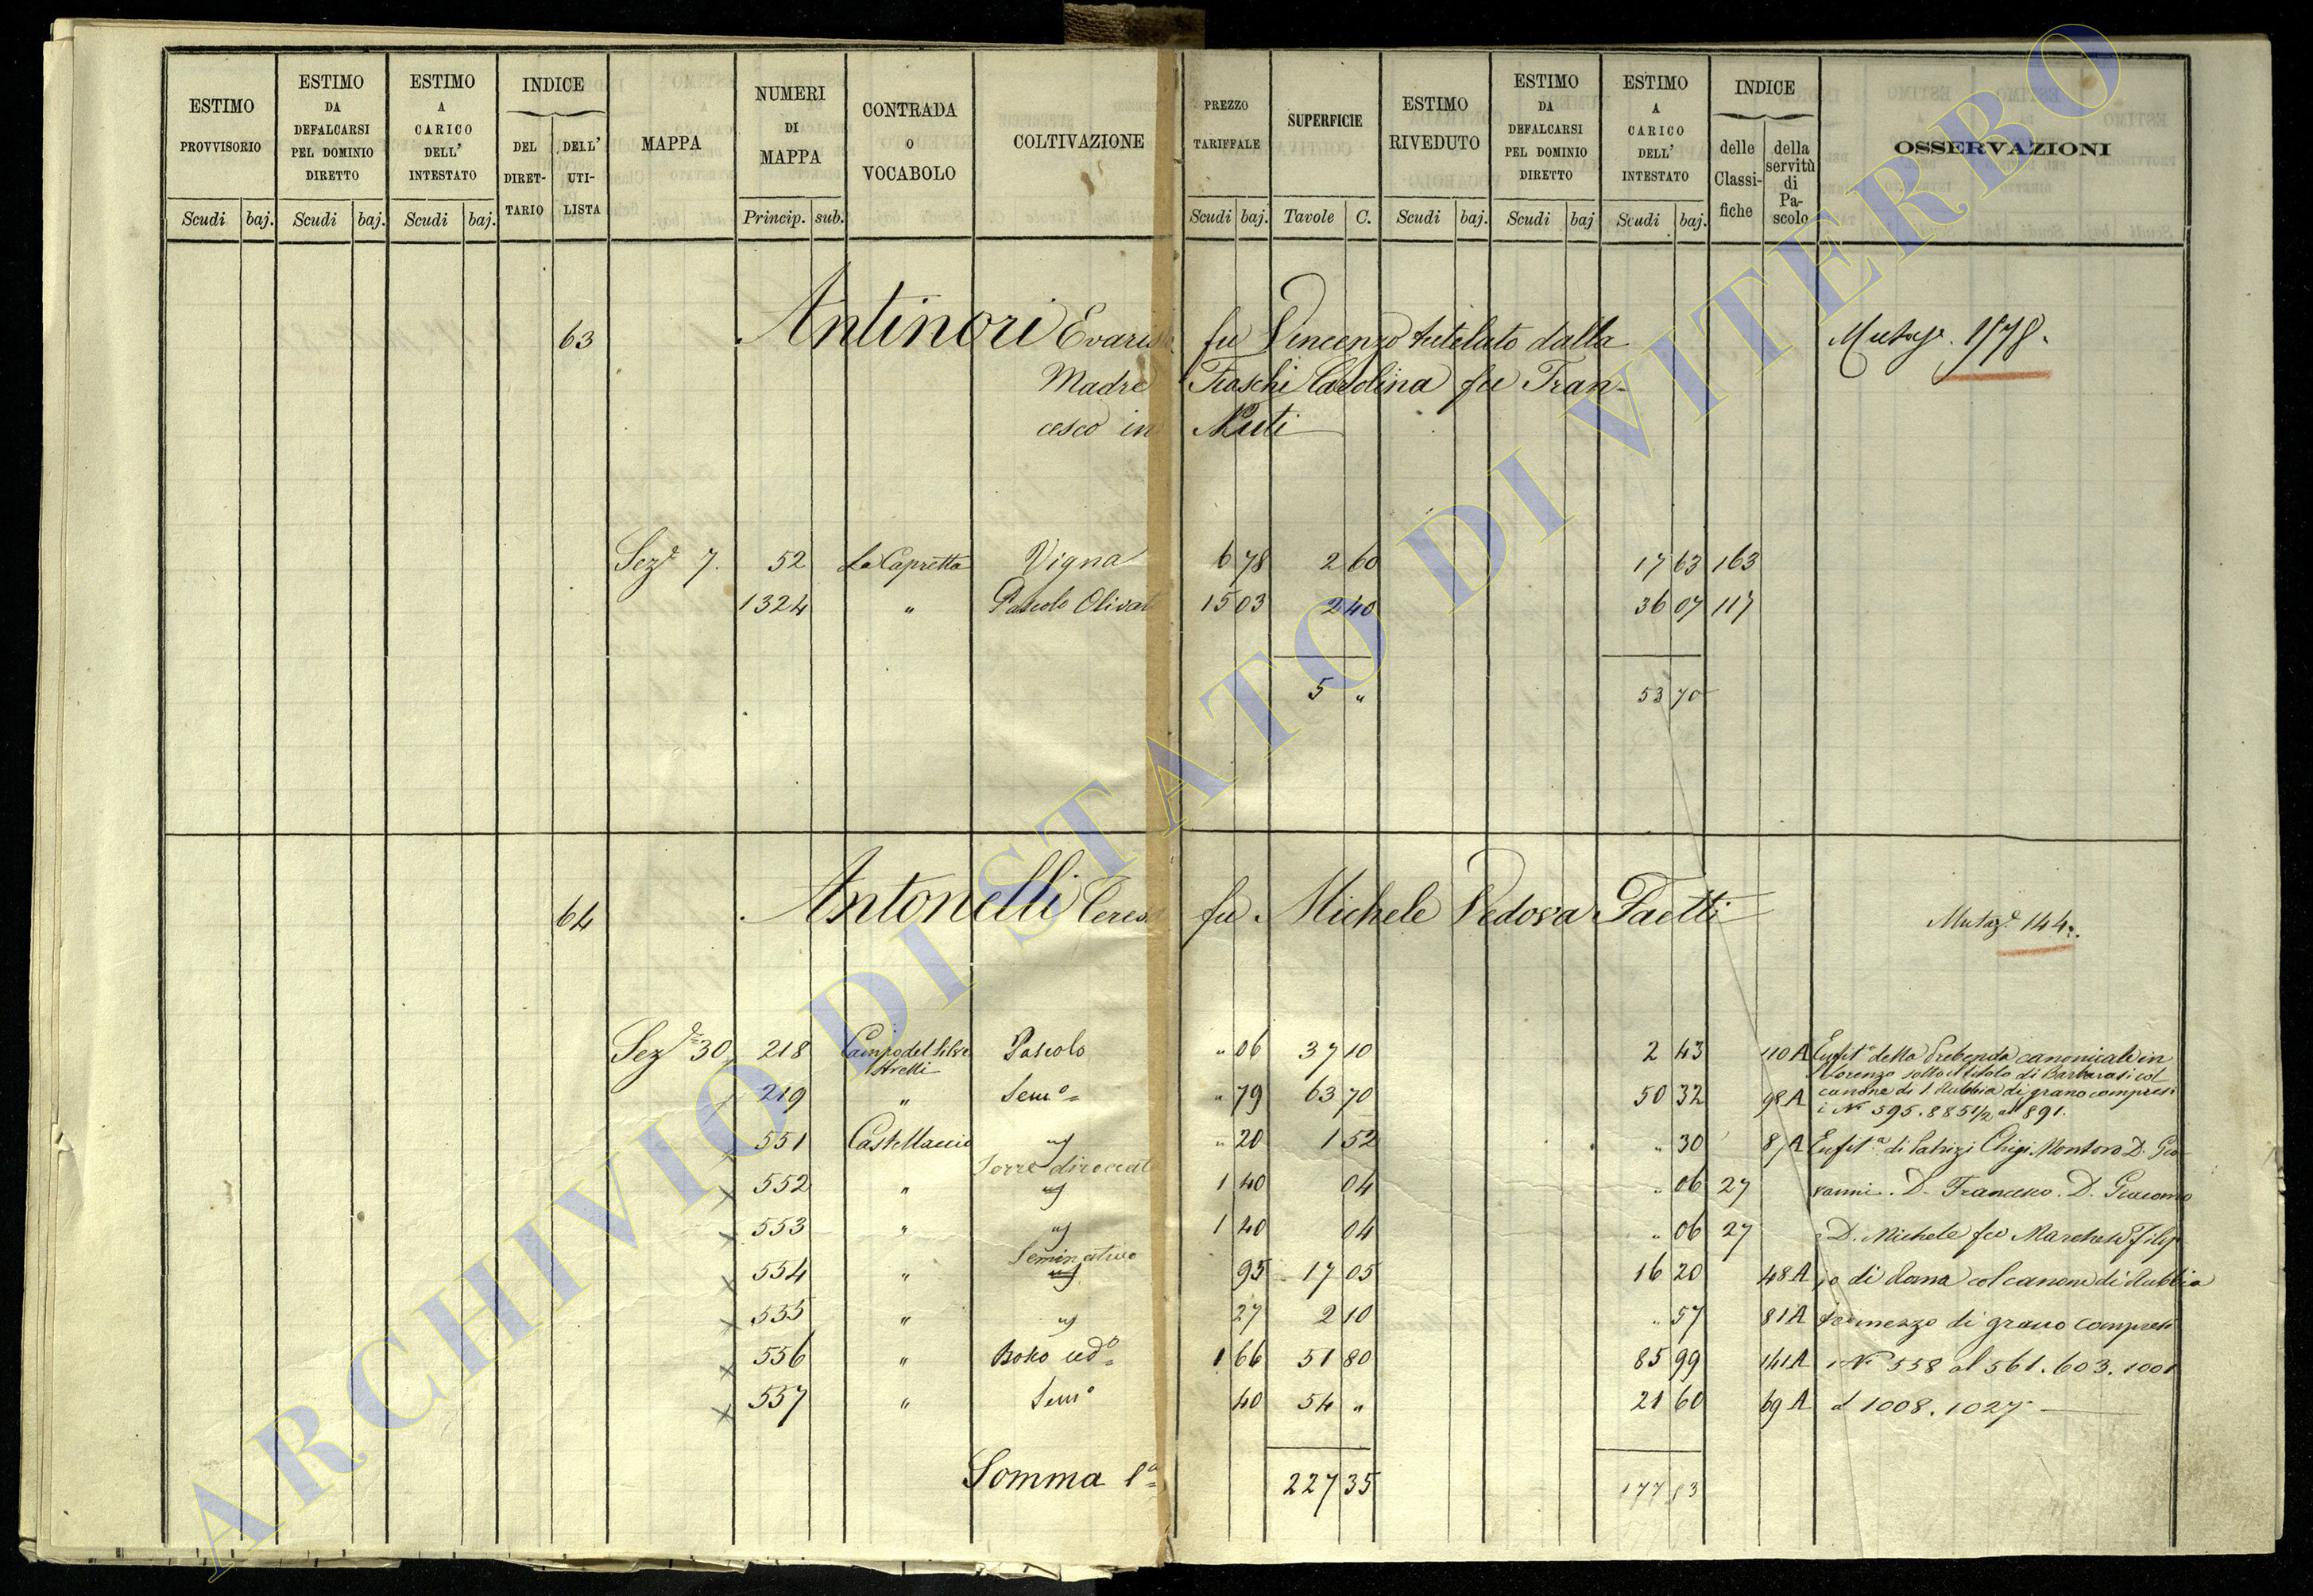 ESTIMO PROVVISORIO
ESTIMO DA DEFALCARSI PEL DOMINIO DIRETTO
ESTIMO A CARICO DELL' INTESTATO
INDICE
DEL DIRET-TARIO
DELL' UTI-LISTA
MAPPA
NUMERI DI MAPPA
CONTRADA O VOCABOLO
COLTIVAZIONE
PREZZO TARIFFALE
SUPERFICIE
ESTIMO RIVEDUTO
ESTIMO DA DEFALCARSI PEL DOMINIO DIRETTO
ESTIMO A CARICO DELL' INTESTATO
INDICE
delle Classi-fiche
della servitù di Pa-scolo
OSSERVAZIONI
Scudi baj. Scudi baj. Scudi baj. Princip. sub. Scudi baj. Tavole C. Scudi baj. Scudi baj Scudi baj.
63 Antinori Evaris fu Vincenzo tutelato dalla
Madre Fraschi Carolina fu Fran-
cesco in Muti
Sez.e 7. 52 La Capretta Vigna 6 78 2 60 17 63 163
1324 " Pascolo Olivat 15 03 2 40 36 07 117
5 " 53 70
64 Antonelli Teres fu Michele Vedova Faetti Mutaz.e 144
Sez.e 30 218 Campo del Silve Pascolo " 06 37 10 2 43 110 A Enfit.a della Prebenda canonicale in
strelli Lorenzo sotto il titolo di Barbarasi col
219 " Sem.o " 79 63 70 50 32 98 A canone di 1 Rubbia di grano compresi
i N.i 595. 885 1/2 al 891.
551 Castellaccio " 20 1 52 " 30 87 A Enfit.a di Patrizi Chigi Montoro D. Gio
Torre diroccat
552 " 1 40 04 " 06 27 vanni. D. Francesco. D. Giacomo
553 " 1 40 04 " 06 27 D. Michele fu Marchese Filip
Seminativo
554 " 95 17 05 16 20 48 A po di Roma col canone di Rubbia
555 " 27 2 10 " 57 81 A mezzo di grano compresi
556 " Bosco ced.o 1 66 51 80 85 99 141 A i N.i 558 al 561. 603. 1001
557 " Sem.o 40 54 " 21 60 69 A al 1008. 1027
Somma 1.a 227 35 177 53
ARCHIVIO DI STATO DI VITERBO